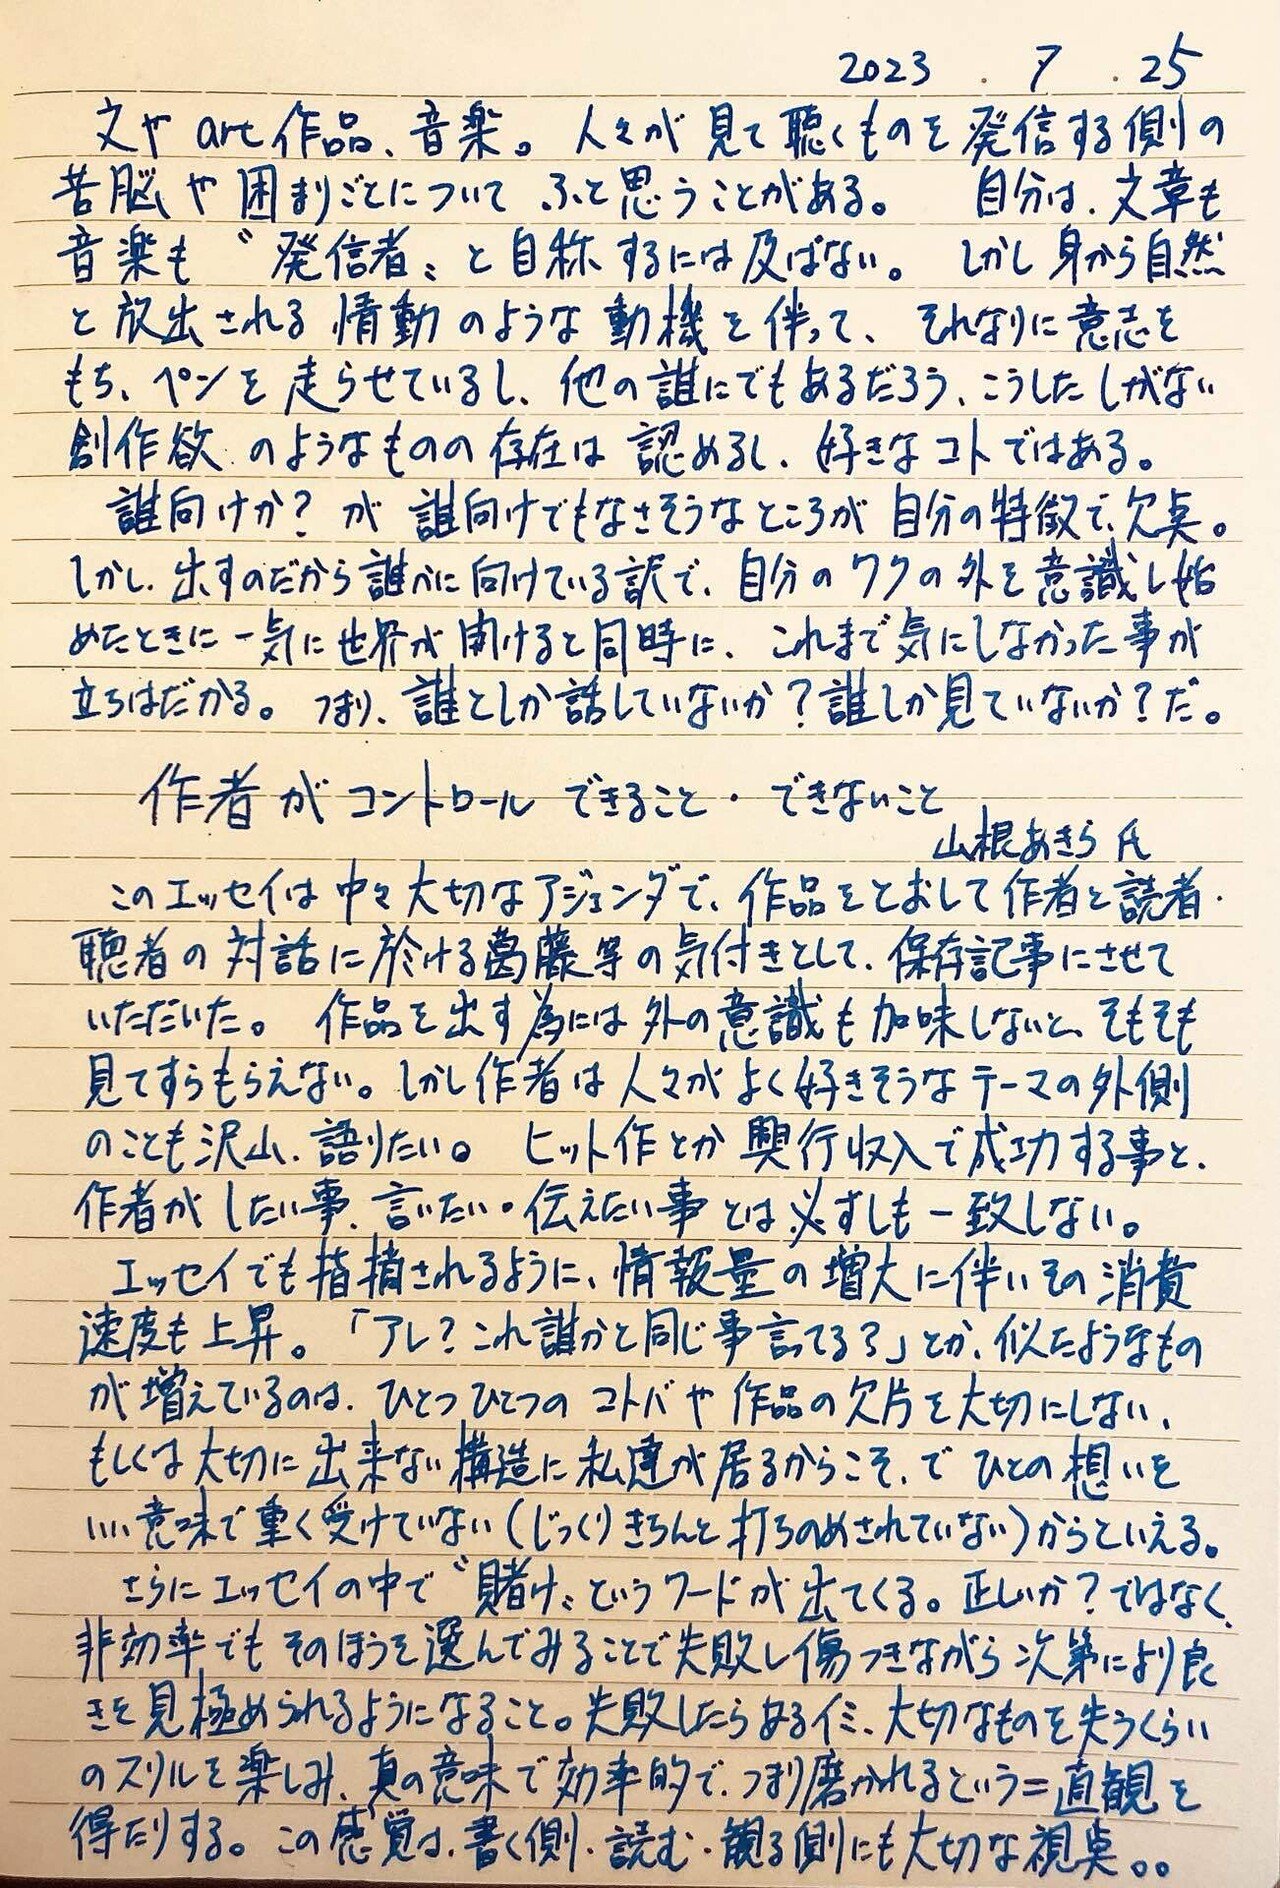 2023 . 7 . 25
文や art 作品、音楽。人々が見て聴くものを発信する側の
苦脳や困まりごとについて ふと思うことがある。 自分は、文章も
音楽も〝発信者〟と自称するには及ばない。 しかし身から自然
と放出される情動のような動機を伴って、それなりに意志を
もち、ペンを走らせているし、他の誰にでもあるだろう、こうしたしがない
創作欲のようなものの存在は認めるし、好きなコトではある。
誰向けか? が誰向けでもなさそうなところが自分の特徴で、欠点。
しかし、出すのだから誰かに向けている訳で、自分のワクの外を意識し始
めたときに一気に世界が開けると同時に、これまで気にしなかった事が
立ちはだかる。つまり、誰としか話していないか?誰しか見ていないか?だ。
作者がコントロールできること・できないこと
山根あきら氏
このエッセイは中々大切なアジェンダで、作品をとおして作者と読者・
聴者の対話に於ける葛藤等の気付きとして、保存記事にさせて
いただいた。 作品を出す為には外の意識も加味しないと、そもそも
見てすらもらえない。しかし作者は人々がよく好きそうなテーマの外側
のことも沢山、語りたい。 ヒット作とか興行収入で成功する事と、
作者がしたい事、言いたい・伝えたい事とは必ずしも一致しない。
エッセイでも指摘されるように、情報量の増大に伴いその消費
速度も上昇。「アレ?これ誰かと同じ事言ってる?」とか、似たようなもの
が増えているのは、ひとつひとつのコトバや作品の欠片を大切にしない、
もしくは大切に出来ない構造に私達が居るからこそ、で ひとの想いを
いい意味で重く受けていない(じっくりきちんと打ちのめされていない)からといえる。
さらにエッセイの中で〝賭け〟というワードが出てくる。正しいか?ではなく、
非効率でもそのほうを選んでみることで失敗し傷つきながら次第により良
きを見極められるようになること。失敗したらあるイミ、大切なものを失うくらい
のスリルを楽しみ、真の意味で効率的で、つまり磨かれるという=直観を
得たりする。この感覚は、書く側・読む・観る側にも大切な視点。。